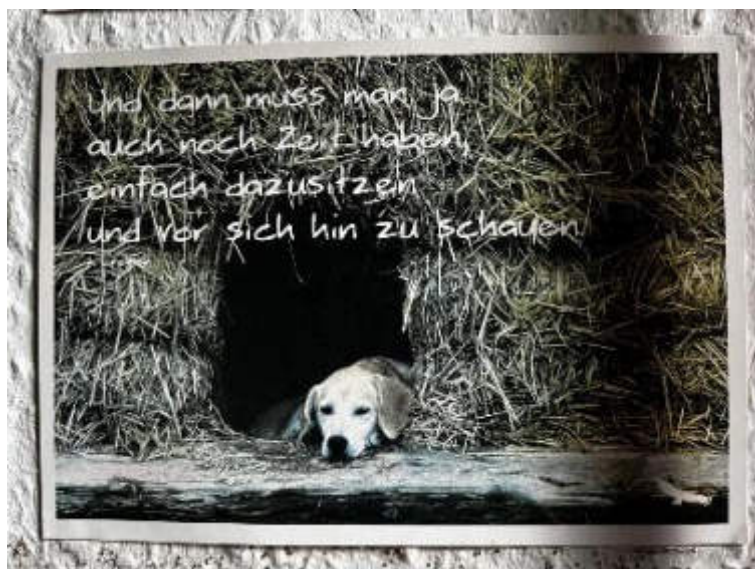 Und dann muss man ja
auch noch Zeit haben,
einfach dazusitzen
und vor sich hin zu schauen